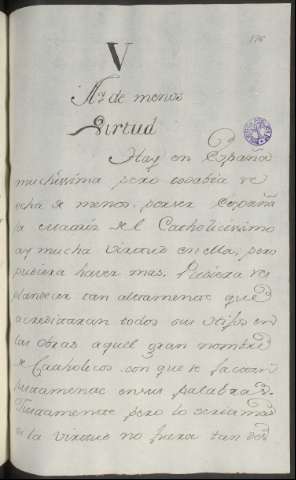 176
V
Az.e de menos
Virtud
Hay en España
muchissima pero todabia se
echa de menos. por ser España
la el Catholicissimo
ay mucha virtud en ella, pero
pudiera haver mas. Pudiera res
plandecer tan altamente que
acreditaran todos sus hijos en
las obras aquel gran nombre
de Catholicos con que se
justamente en sus palabras.
Justamente pero lo seria mas
si la virtud no fuera tan